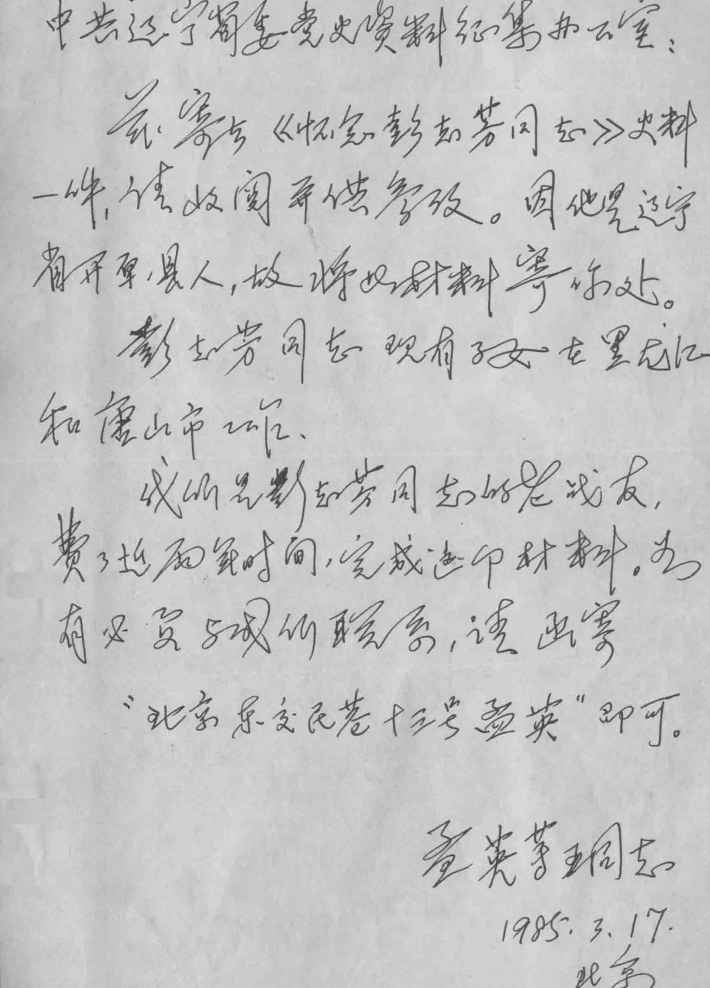 中共辽宁省委党史资料征集办公室：
兹寄去《怀念彭志芳同志》史料
一件，请收阅并供参考。因他是辽宁
省开原县人，故将此材料寄你处。
彭志芳同志现有子女在黑龙江
和唐山市工作、
我们是彭志芳同志的老战友，
费了近两年时间，完成这印材料。如
有必要与我们联系，请函寄
“北京东交民巷十三号孟英”即可。
孟英等五同志
1985.3.17.
北京